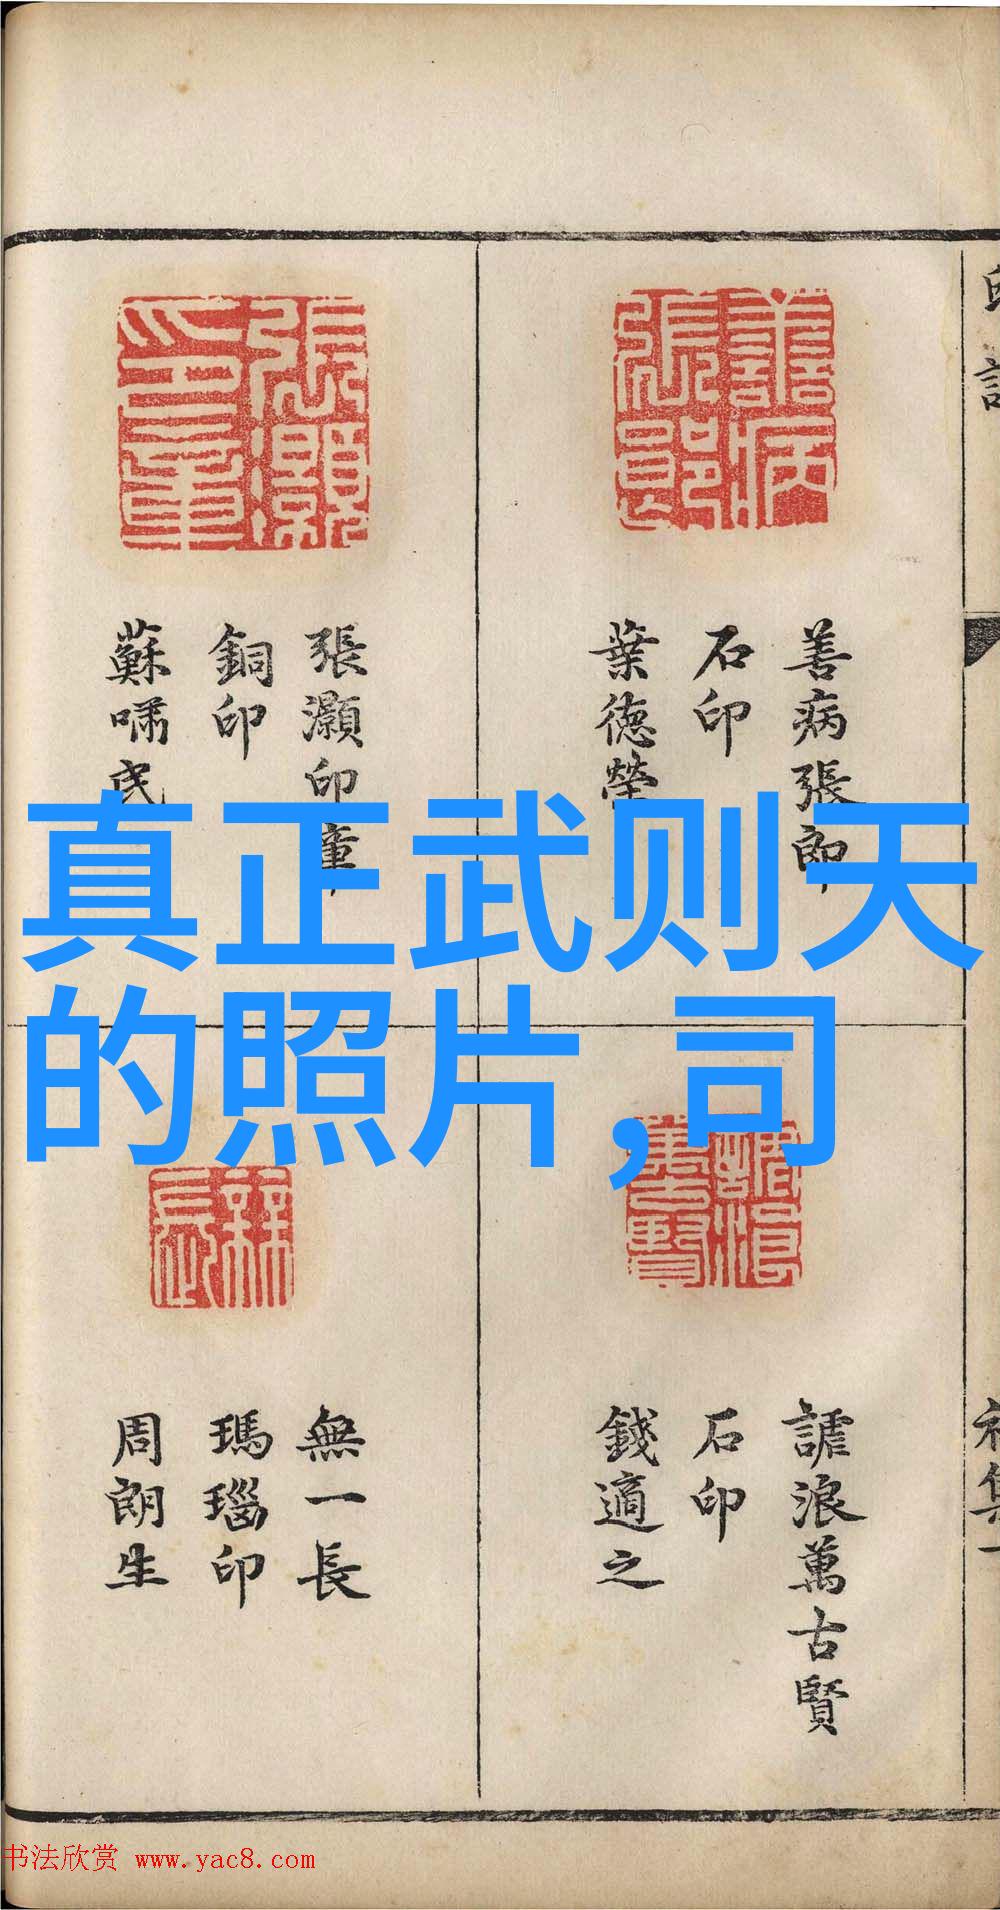 真正武则天
的照片,司
善病張郎
石印
葉德榮
張灝印章
銅印
蘇嘯民
謔浪萬古賢
石印
錢適之
無一長
瑪瑙印
周朗生
初集一
书法欣赏 www.yac8.com